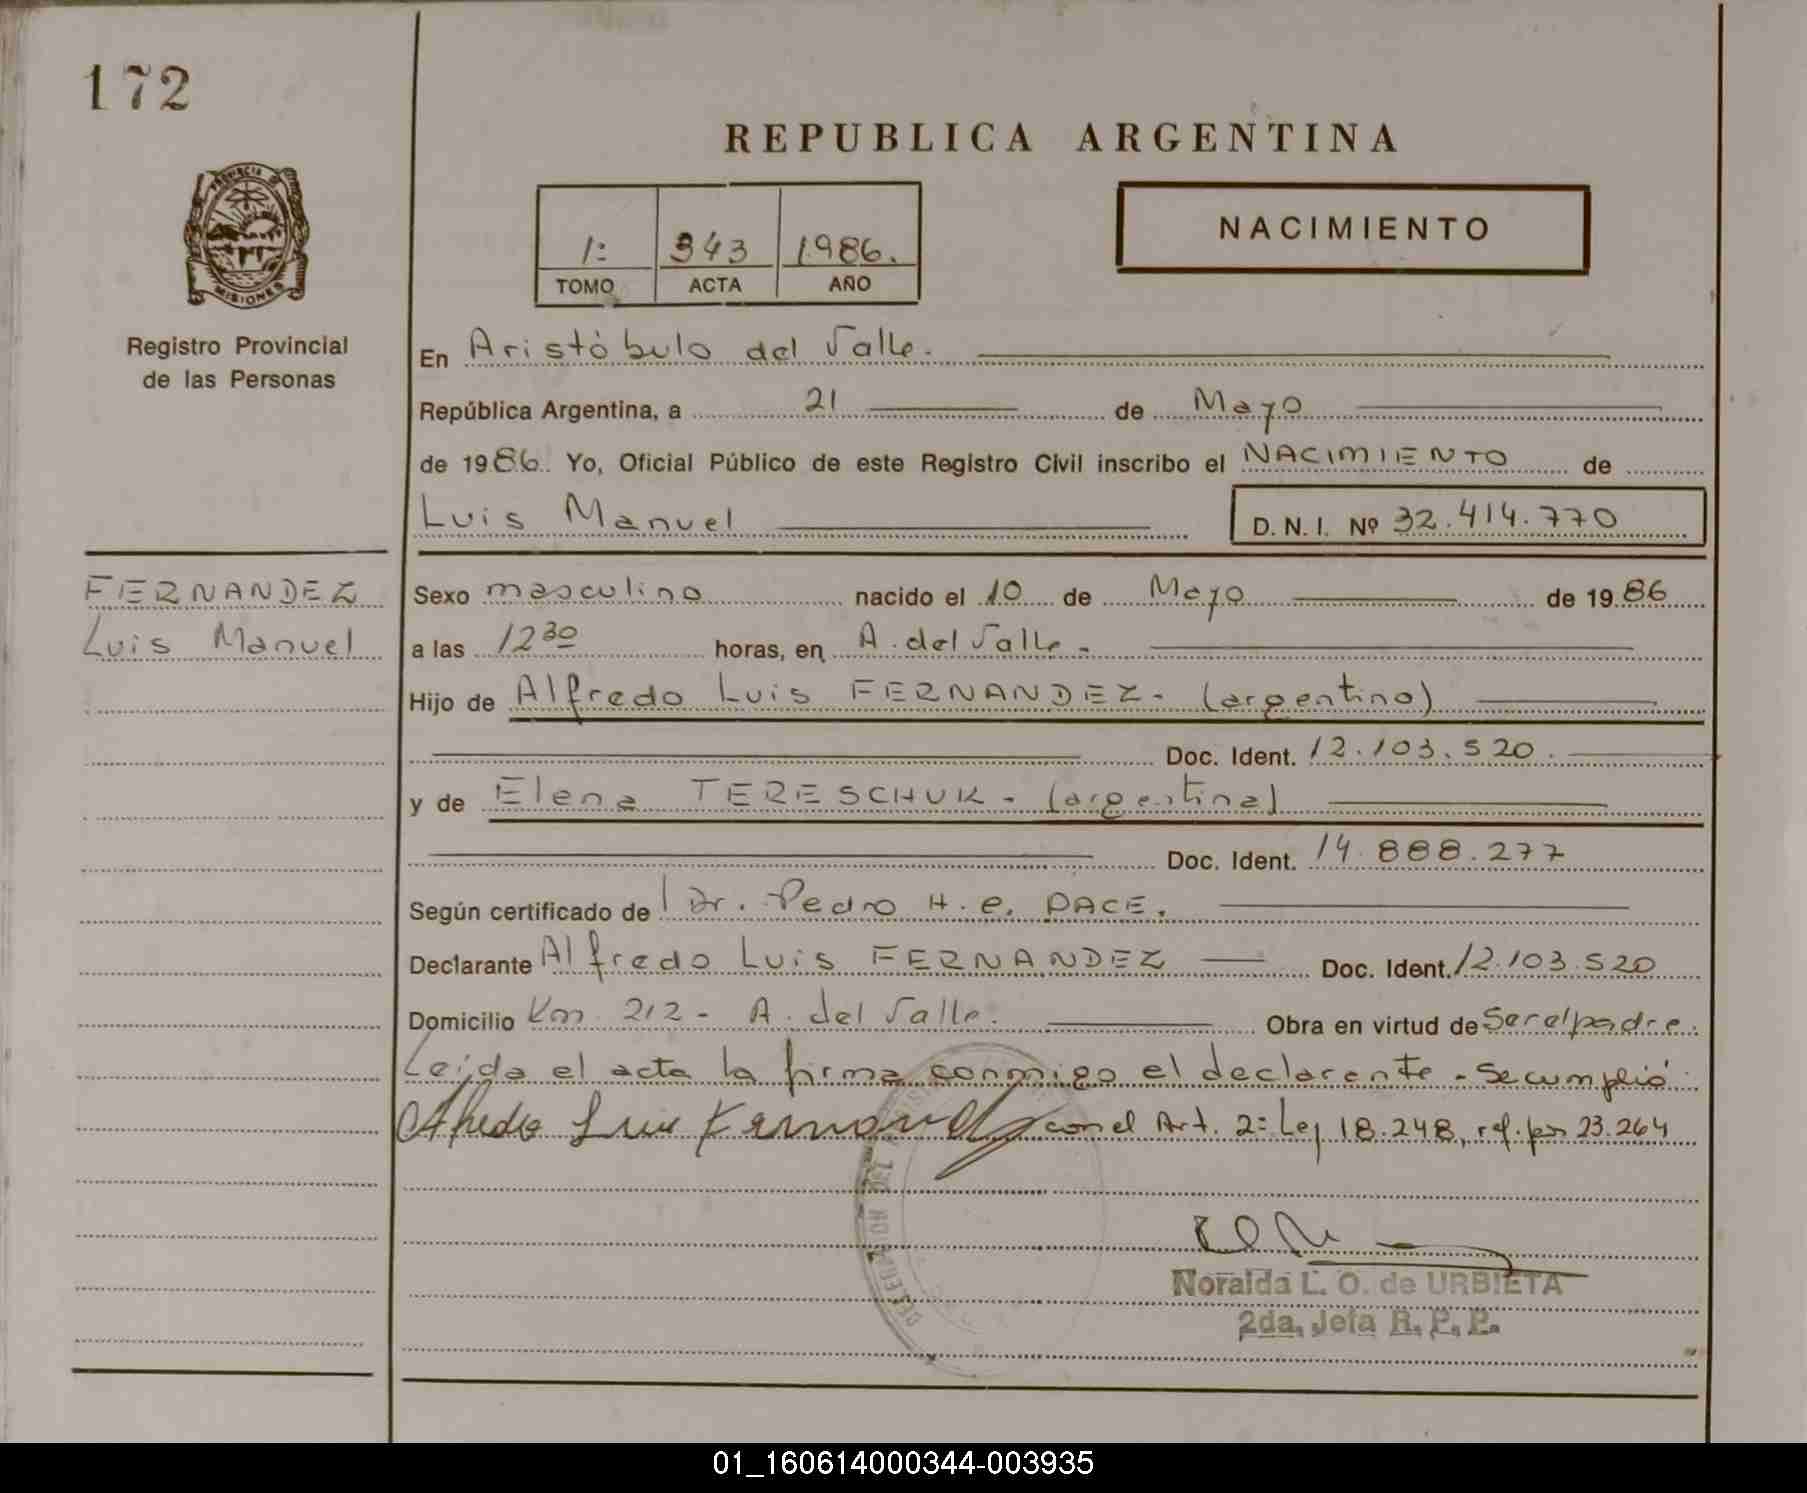 172
REPUBLICA ARGENTINA
PROVINCIA DE
MISIONES
Registro Provincial
de las Personas
1:
343
1986.
TOMO
ACTA
AÑO
NACIMIENTO
En Aristóbulo del Valle.
República Argentina, a 21 de Mayo
de 1986. Yo, Oficial Público de este Registro Civil inscribo el NACIMIENTO de
Luis Manuel
D. N. I. Nº 32.414.770
FERNANDEZ
Luis Manuel
Sexo masculino nacido el 10 de Mayo de 1986
a las 12 30 horas, en A. del Valle -
Hijo de Alfredo Luis FERNANDEZ - (argentino)
Doc. Ident. 12.103.520.
y de Elena TERESCHUK - (argentina)
Doc. Ident. 14.888.277
Según certificado de Dr. Pedro H. e. PACE.
Declarante Alfredo Luis FERNANDEZ Doc. Ident. 12.103.520
Domicilio Km. 212 - A. del Valle. Obra en virtud de Ser el padre.
Leida el acta la firma conmigo el declarante - Se cumplió
Alfredo Luis Fernandez con el Art. 2: Ley 18.248, ref. por 23.264
Noralda L. O. de URBIETA
2da. Jefa R. P. P.
01_160614000344-003935